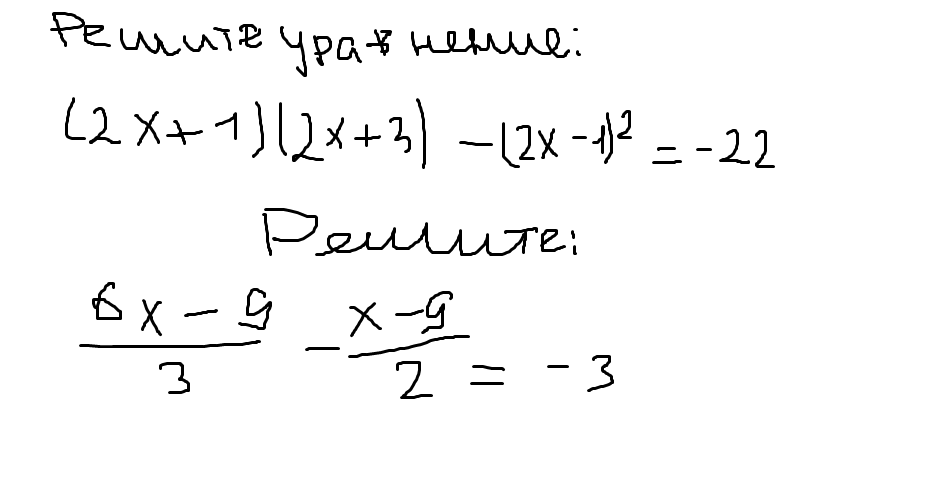 Решите уравнение:
(2x+1)(2x+3) -(2x-1)² = -22
Решите:
6x-9/3 - x-9/2 = -3